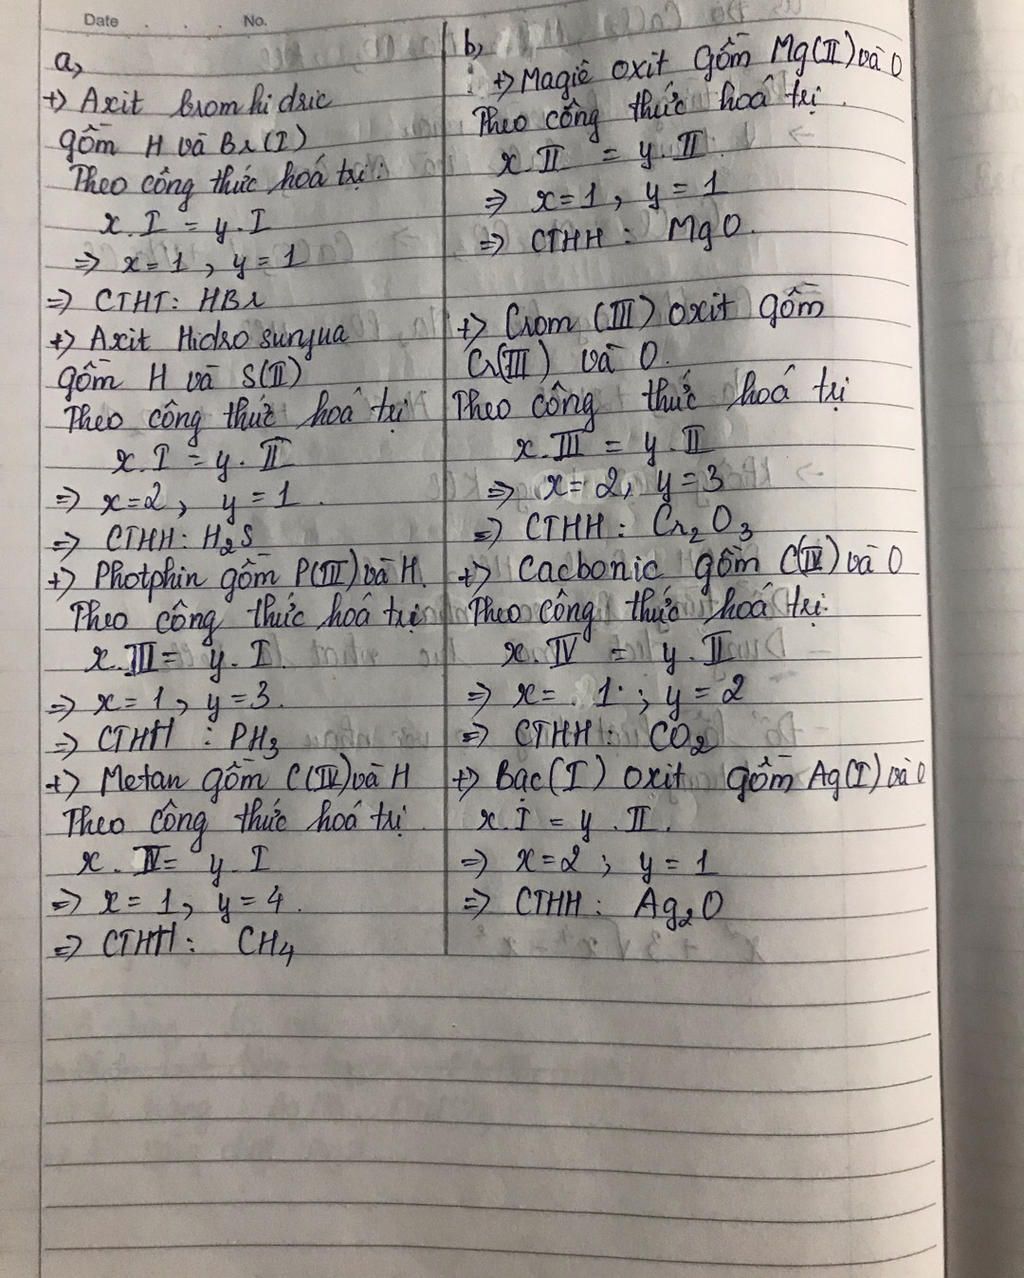 Date . . . No.
a,
+) Axit bromhidric
gồm H và Br(I)
Theo công thức hoá trị:
x.I = y.I
=> x=1, y=1
=> CTHT: HBr
+) Axit Hidro sunfua
gồm H và S(II)
Theo công thức hoá trị
x.I = y.II
=> x=2, y=1.
=> CTHH: H₂S
+) Photphin gồm P(III) và H.
Theo công thức hoá trị
x.III = y.I.
=> x=1, y=3.
=> CTHH : PH₃
+) Metan gồm C(IV) và H
Theo công thức hoá trị.
x.IV= y.I
=> x=1, y=4.
=> CTHH: CH₄
b,
+) Magiê oxit gồm Mg(II) và O
Theo công thức hoá trị.
x.II = y.II.
=> x=1, y=1
=> CTHH: MgO.
+) Crom (III) oxit gồm
Cr(III) và O.
Theo công thức hoá trị
x.III = y.II
=> x=2, y=3
=> CTHH: Cr₂O₃
+) Cacbonic gồm C(IV) và O
Theo công thức hoá trị.
x.IV = y.II
=> x= 1 ; y=2
=> CTHH: CO₂
+) Bạc(I) oxit gồm Ag(I) và O
x.I = y.II.
=> x=2 ; y=1
=> CTHH: Ag₂O